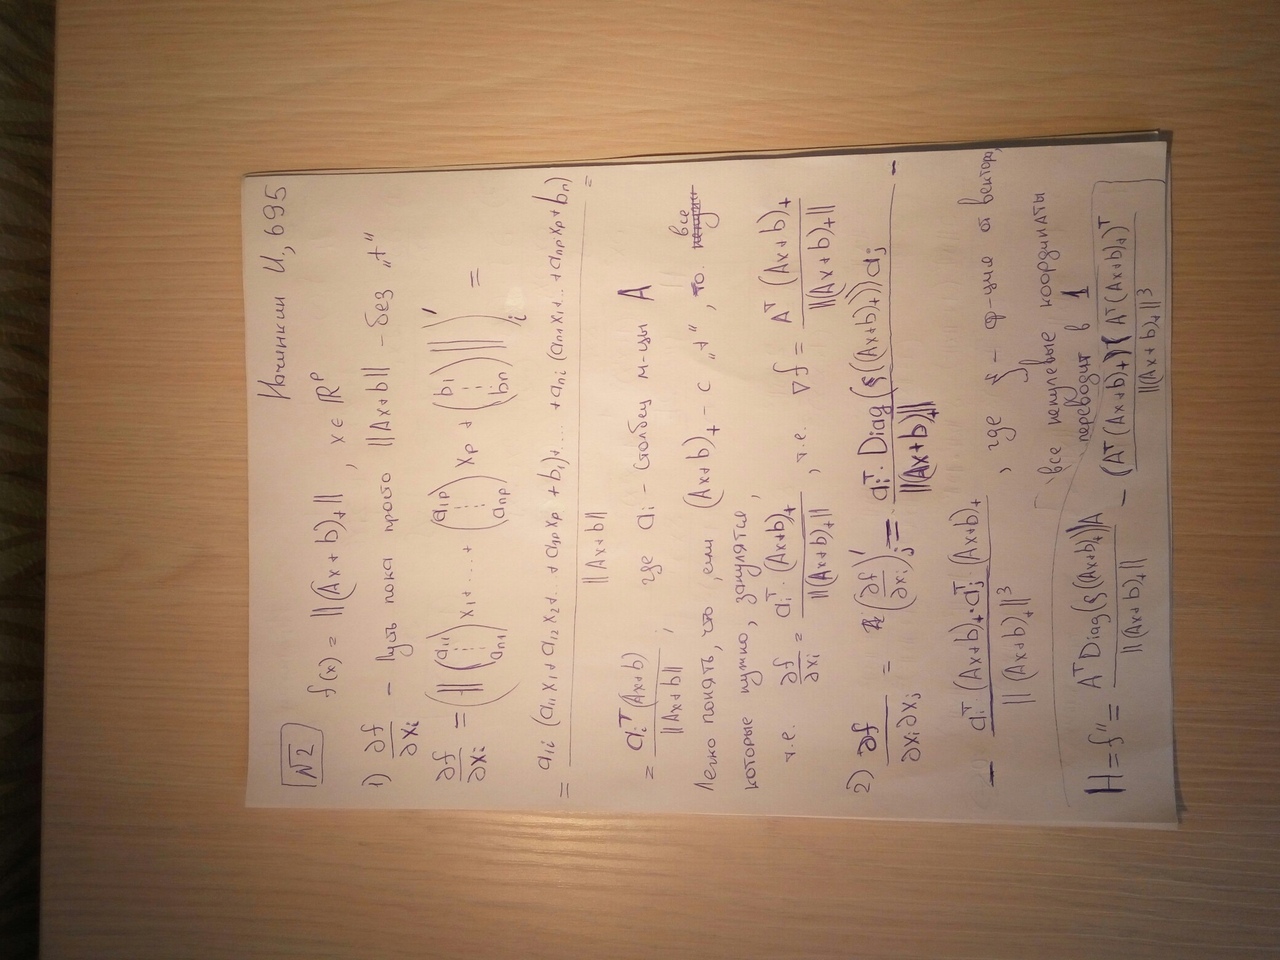 Начинкин И., 695
№2 f(x) = ||(Ax+b)₊|| , x ∈ ℝᵖ
1) ∂f/∂xᵢ – Пусть пока просто ||Ax+b|| – без „+“
∂f/∂xᵢ = (||(a₁₁ ⋮ aₙ₁) x₁ + ... + (a₁ₚ ⋮ aₙₚ) xₚ + (b₁ ⋮ bₙ)||)'ᵢ =
= (a₁ᵢ (a₁₁x₁ + a₁₂x₂ + ... + a₁ₚxₚ + b₁) + ... + aₙᵢ (aₙ₁x₁ + ... + aₙₚxₚ + bₙ)) / ||Ax+b|| =
= aᵢᵀ(Ax+b) / ||Ax+b|| , где aᵢ – столбец м-цы A
Легко понять, что, если (Ax+b)₊ – с „+“, то все
которые нужно, занулятся,
т.е. ∂f/∂xᵢ = aᵢᵀ · (Ax+b)₊ / ||(Ax+b)₊|| , т.е. ∇f = Aᵀ (Ax+b)₊ / ||(Ax+b)₊||
2) ∂f / ∂xᵢ∂xⱼ = (∂f/∂xᵢ)'ⱼ = aᵢᵀ · Diag(ξ((Ax+b)₊)) aⱼ / ||(Ax+b)₊|| –
– aᵢᵀ (Ax+b)₊ · aⱼᵀ · (Ax+b)₊ / ||(Ax+b)₊||³ , где ξ – ф-ция от вектора,
все ненулевые координаты
переводит в 1
H = f'' = AᵀDiag(ξ((Ax+b)₊))A / ||(Ax+b)₊|| – (Aᵀ(Ax+b)₊)(Aᵀ(Ax+b)₊)ᵀ / ||(Ax+b)₊||³